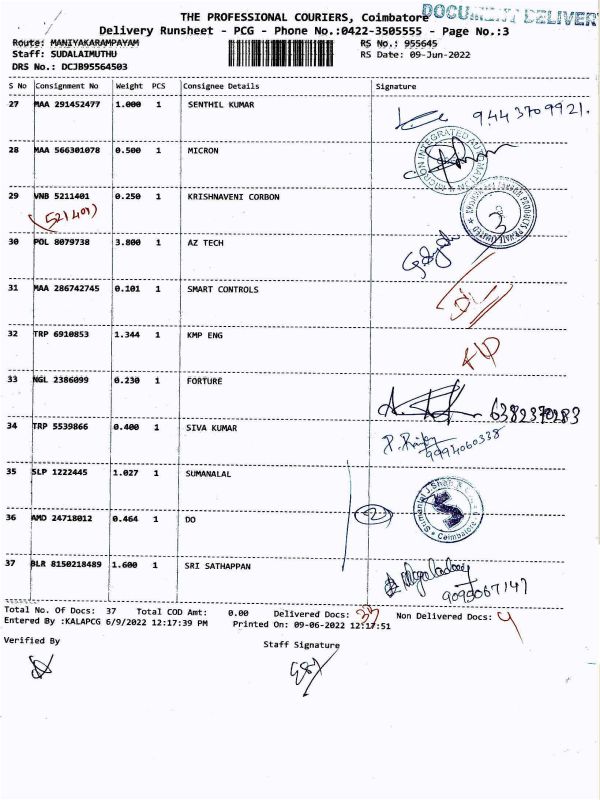 THE PROFESSIONAL COURIERS, Coimbatore
DOCUMENT DELIVER
Delivery Runsheet - PCG - Phone No.:0422-3505555 - Page No.:3
Route: MANIYAKARAMPAYAM RS No.: 955645
Staff: SUDALAIMUTHU RS Date: 09-Jun-2022
DRS No.: DCJB95564503
S No Consignment No Weight PCS Consignee Details Signature
27 MAA 291452477 1.000 1 SENTHIL KUMAR 9443709921.
28 MAA 566301078 0.500 1 MICRON
29 VNB 5211401 0.250 1 KRISHNAVENI CORBON
(521401)
3
30 POL 8079738 3.800 1 AZ TECH
31 MAA 286742745 0.101 1 SMART CONTROLS
32 TRP 6910853 1.344 1 KMP ENG
33 NGL 2386099 0.230 1 FORTURE 6382370283
34 TRP 5539866 0.400 1 SIVA KUMAR 9994060338
35 SLP 1222445 1.027 1 SUMANALAL
36 AMD 24718012 0.464 1 DO 2
37 BLR 8150218489 1.600 1 SRI SATHAPPAN
Total No. Of Docs: 37 Total COD Amt: 0.00 Delivered Docs: 33 Non Delivered Docs: 4
Entered By :KALAPCG 6/9/2022 12:17:39 PM Printed On: 09-06-2022 12:17:51
Verified By Staff Signature